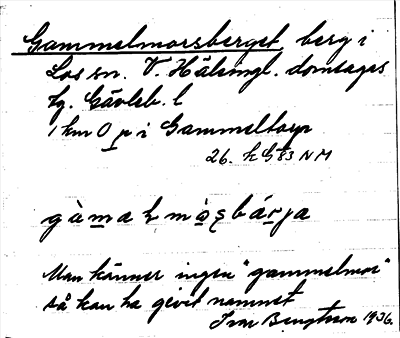 Gammelmorsberget berg i
Los sn. V. Hälsingl. domsagas
tg. Gävleb. l
1 km O p i Gammeltorp
26. h G 83 NM
Man känner ingen "gammelmor"
så kan ha givit namnet
Ivar Bengtsson 1936.